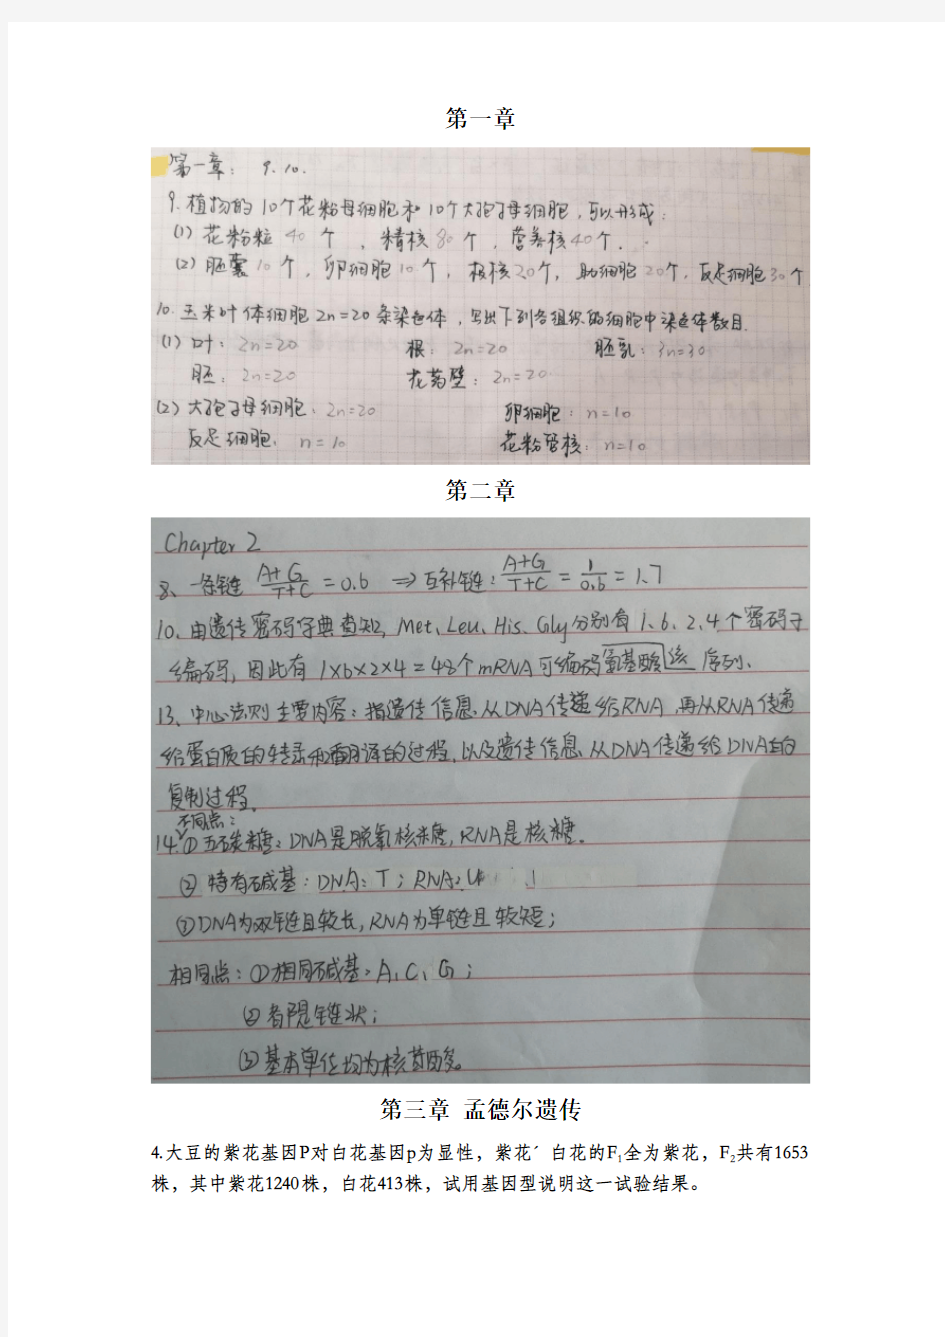 第一章
第一章： 9. 10.
9. 植物的10个花粉母细胞和10个大孢子母细胞，可以形成：
(1) 花粉粒 40 个 ，精核 80 个 ，营养核 40个．
(2) 胚囊 10 个，卵细胞 10 个，极核 20个，助细胞 20个，反足细胞 30 个
10. 玉米叶体细胞 2n=20 条染色体，写出下列各组织的细胞中染色体数目．
(1) 叶：2n=20 根：2n=20 胚乳：3n=30
胚：2n=20 花药壁：2n=20
(2) 大孢子母细胞：2n=20 卵细胞：n=10
反足细胞：n=10 花粉管核：n=10
第二章
Chapter 2
8、一条链 A+G/T+C = 0.6 ⇒ 互补链：A+G/T+C = 1/0.6 = 1.7
10、由遗传密码字典查知，Met、Leu、His、Gly分别有 1、6、2、4 个密码子
编码，因此有 1×6×2×4=48个mRNA可编码氨基酸该序列、
13、中心法则主要内容：指遗传信息从DNA传递给RNA，再从RNA传递
给蛋白质的转录和翻译的过程，以及遗传信息从DNA传递给DNA的
复制过程。
不同点：
14.①五碳糖：DNA是脱氧核糖，RNA是核糖。
②特有碱基：DNA：T；RNA：U
③DNA为双链且较长，RNA为单链且较短；
相同点：①相同碱基：A、C、G；
②都是链状；
③基本单位均为核苷酸。
第三章 孟德尔遗传
4.大豆的紫花基因P对白花基因p为显性，紫花´ 白花的F₁全为紫花，F₂共有1653
株，其中紫花1240株，白花413株，试用基因型说明这一试验结果。